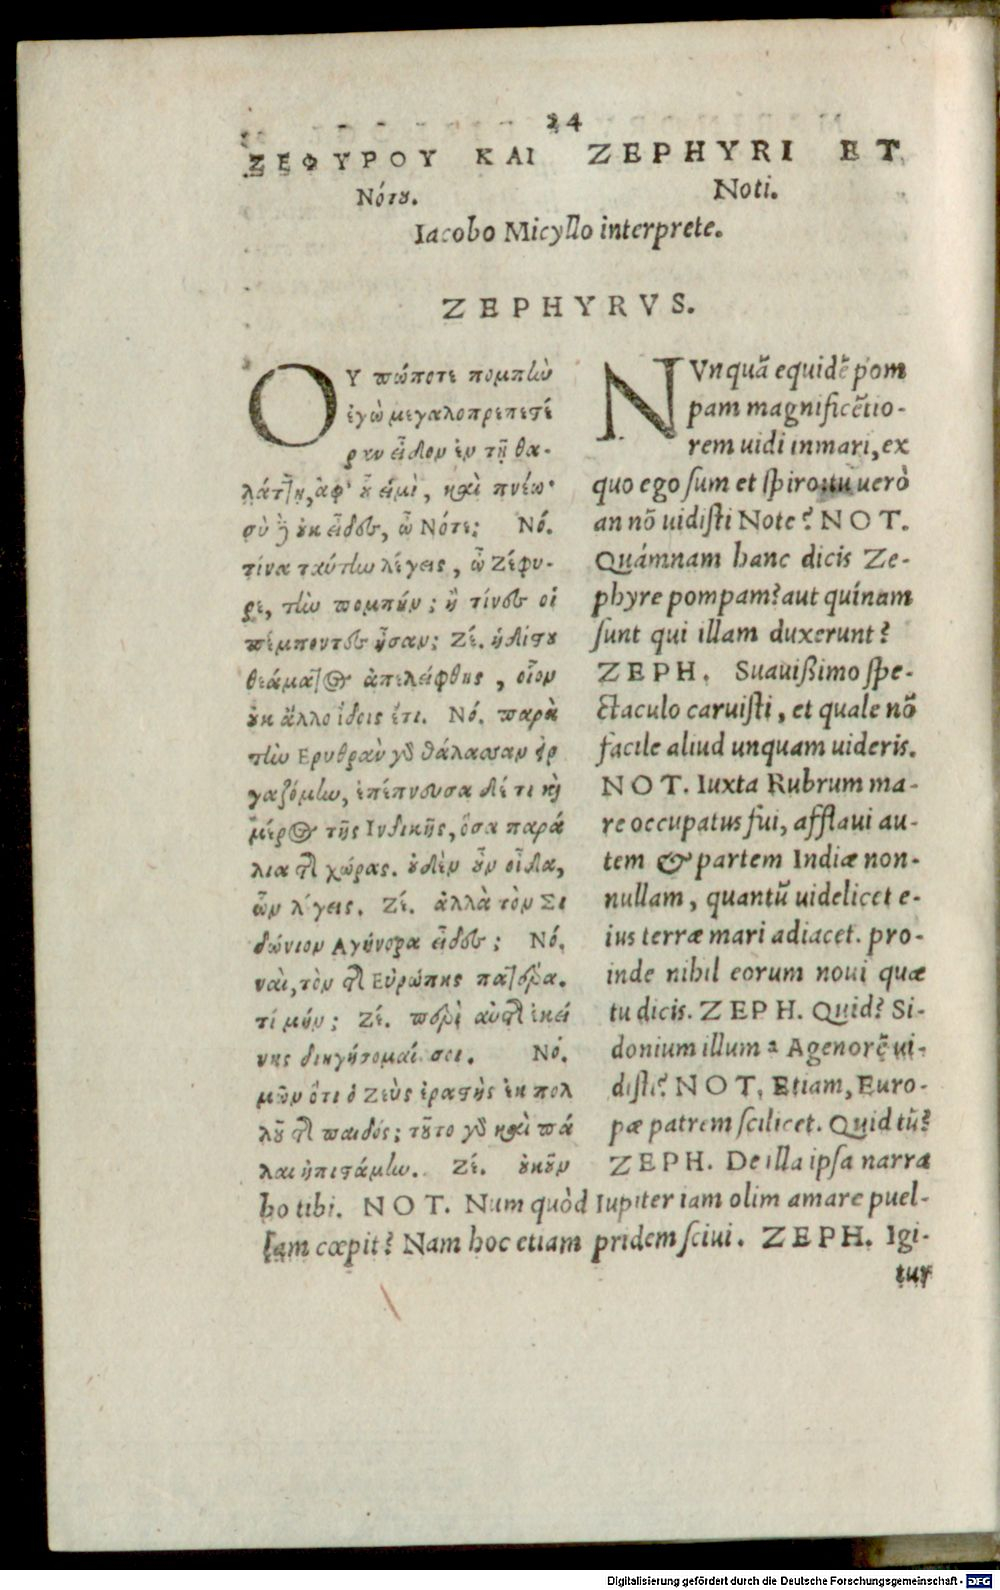 24
ΖΕΦΥΡΟΥ ΚΑΙ
Νότȣ.
ZEPHYRI ET
Noti.
Iacobo Micyllo interprete.
ZEPHYRVS.
ΟΥ πώποτε πομπὼ
ἐγὼ μεγαλοπρεπεστέ
ραν εἶδον ἐν τῇ θα-
λάττῃ, ἀφ' ȣ̓͂ εἰμὶ, καὶ πνέω·
σὺ ȣ̓κ εἶδες, ὦ Νότε; Νό.
τίνα ταύτην λέγεις, ὦ Ζέφυ-
ρε, τὴν πομπήν; ἢ τίνες οἱ
πέμποντες ἦσαν; Ζέ. ἡδίστȣ
θεάματος ἀπελείφθης, οἷον
ȣ̓κ ἄλλο ἴδοις ἔτι. Νό. παρὰ
τὴν Ερυθρὰν γὰρ θάλασσαν εἰρ
γαζόμην, ἐπέπνευσα δέ τι καὶ
μέρος τῆς Ινδικῆς, ὅσα παρά
λια τῆς χώρας. ȣ̓δὲν ȣ̓͂ν οἶδα,
ὧν λέγεις. Ζέ. ἀλλὰ τὸν Σι
δώνιον Αγήνορα εἶδες; Νό.
ναὶ, τὸν τῆς Εὐρώπης πατέρα.
τί μήν; Ζέ. περὶ αὐτῆς ἐκεί
νης διηγήσομαί σοι. Νό.
μῶν ὅτι ὁ Ζεὺς ἐραστὴς ἐκ πολ
λȣ͂ τῆς παιδός; τȣ͂το γὰρ καὶ πά
λαι ἠπιστάμην. Ζέ. ȣ̓κȣ͂ν
NVnquã equidẽ pom
pam magnificẽtio-
rem uidi in mari, ex
quo ego sum et spiro: tu uerò
an nõ uidisti Note? NOT.
Quámnam hanc dicis Ze-
phyre pompam? aut quínam
sunt qui illam duxerunt?
ZEPH. Suauißimo spe-
ctaculo caruisti, et quale nõ
facile aliud unquam uideris.
NOT. Iuxta Rubrum ma-
re occupatus fui, afflaui au-
tem & partem Indiæ non-
nullam, quantũ uidelicet e-
ius terræ mari adiacet. pro-
inde nihil eorum noui quæ
tu dicis. ZEPH. Quid? Si-
donium illum Agenorẽ ui-
disti? NOT. Etiam, Euro-
pæ patrem scilicet. Quid tũ?
ZEPH. De illa ipsa narra
bo tibi. NOT. Num quòd Iupiter iam olim amare puel-
lam cœpit? Nam hoc etiam pridem sciui. ZEPH. Igi-
tur
Digitalisierung gefördert durch die Deutsche Forschungsgemeinschaft - DFG